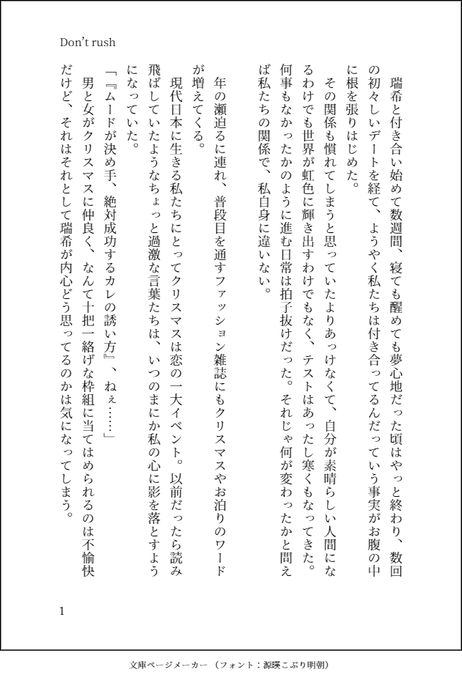 Don't rush
　瑞希と付き合い始めて数週間、寝ても醒めても夢心地だった頃はやっと終わり、数回
の初々しいデートを経て、ようやく私たちは付き合ってるんだっていう事実がお腹の中
に根を張りはじめた。
　その関係も慣れてしまうと思っていたよりあっけなくて、自分が素晴らしい人間にな
るわけでも世界が虹色に輝き出すわけでもなく、テストはあったし寒くもなってきた。
何事もなかったかのように進む日常は拍子抜けだった。それじゃ何が変わったかと問え
ば私たちの関係で、私自身に違いない。
　年の瀬迫るに連れ、普段目を通すファッション雑誌にもクリスマスやお泊りのワード
が増えてくる。
　現代日本に生きる私たちにとってクリスマスは恋の一大イベント。以前だったら読み
飛ばしていたようなちょっと過激な言葉たちは、いつのまにか私の心に影を落とすよう
になっていた。
「『ムードが決め手、絶対成功するカレの誘い方』、ねぇ……」
　男と女がクリスマスに仲良く、なんて十把一絡げな枠組に当てはめられるのは不愉快
だけど、それはそれとして瑞希が内心どう思ってるのかは気になってしまう。
1
文庫ページメーカー（フォント：源瑛こぶり明朝）